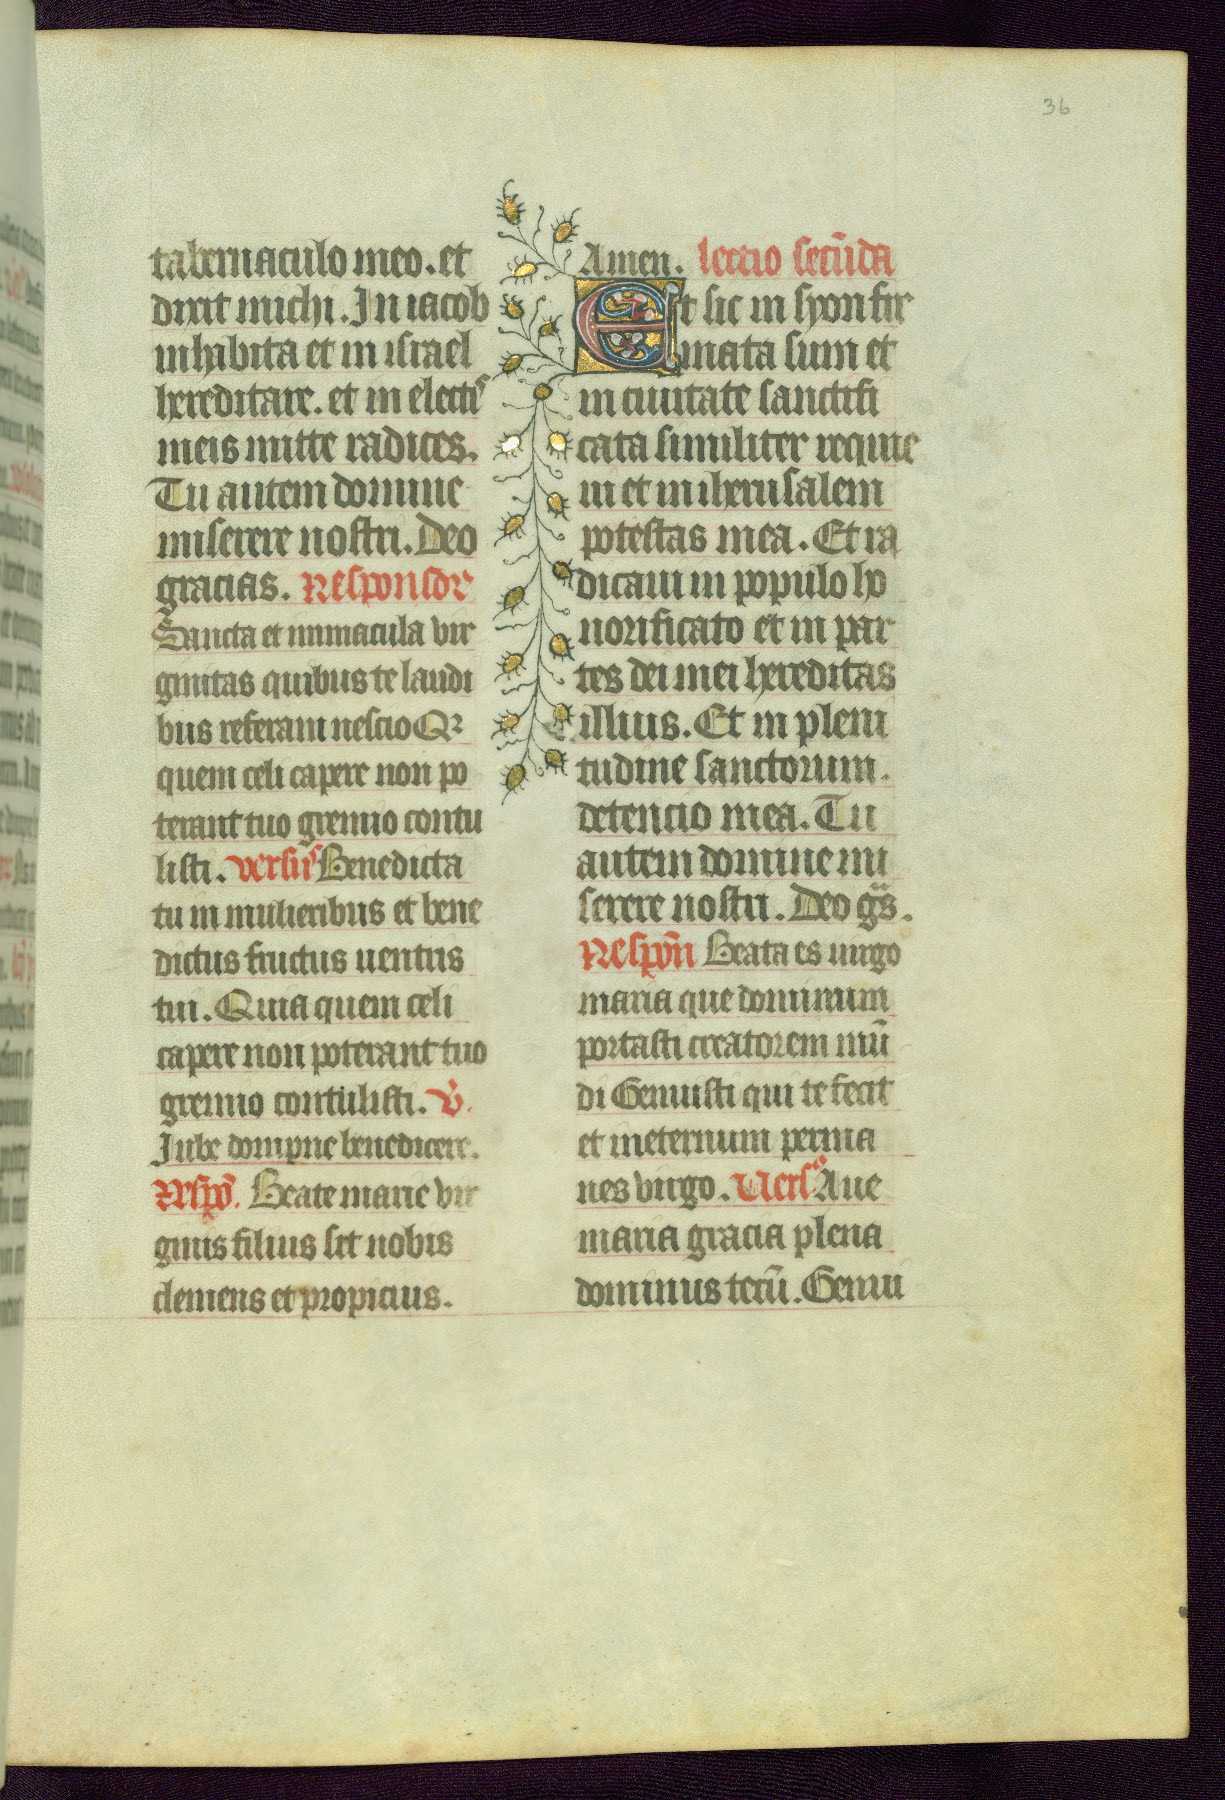 36
tabernaculo meo. et
dixit michi. In iacob
inhabita et in israel
hereditare. et in electis
meis mitte radices.
Tu autem domine
miserere nostri. Deo
gracias. Responsor
Sancta et inmacula vir
ginitas quibus te laudi
bus referam nescio Qr
quem celi capere non po
terant tuo gremio contu
listi. versus Benedicta
tu in mulieribus et bene
dictus fructus uentris
tui. Quia quem celi
capere non poterant tuo
gremio contulisti. V.
Iube dompne benedicere.
Respo. Beate marie vir
ginis filius sit nobis
clemens et propicius.
Amen. lectio secūda
Et sic in syon fir
mata sum et
in ciuitate sanctifi
cata similiter requie
ui et in iherusalem
potestas mea. Et ra
dicaui in populo ho
norificato et in par
tes dei mei hereditas
illius. Et in pleni
tudine sanctorum.
detencio mea. Tu
autem domine mi
serere nostri. Deo gr̄as.
Respoñ Beata es uirgo
maria que dominum
portasti creatorem mū
di Genuisti qui te fecit
et ineternum perma
nes virgo. Uers Aue
maria gracia plena
dominus tecū. Genui